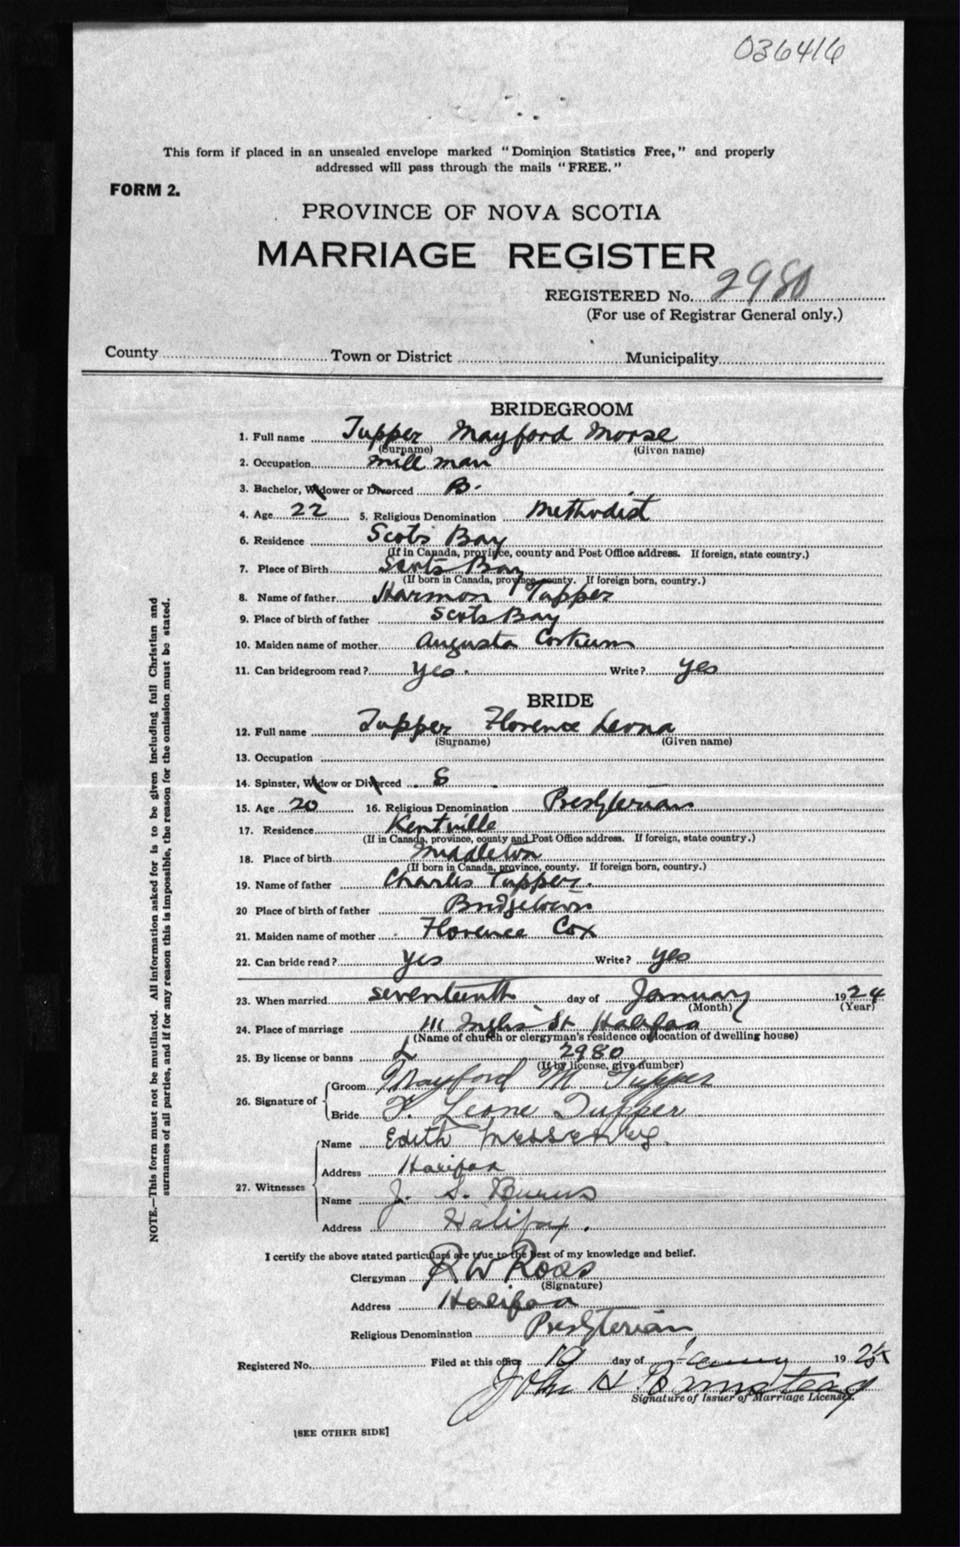 036416
This form if placed in an unsealed envelope marked "Dominion Statistics Free," and properly
addressed will pass through the mails "FREE."
FORM 2.
PROVINCE OF NOVA SCOTIA
MARRIAGE REGISTER
REGISTERED No. 2980
(For use of Registrar General only.)
County Town or District Municipality
BRIDEGROOM
1. Full name Tupper Mayford Morse
(Surname) (Given name)
2. Occupation mill man
3. Bachelor, Widower or Divorced B.
4. Age 22 5. Religious Denomination Methodist
6. Residence Scots Bay
(If in Canada, province, county and Post Office address. If foreign, state country.)
7. Place of Birth Scots Bay
(If born in Canada, province county. If foreign born, country.)
8. Name of father Harmon Tupper
9. Place of birth of father Scots Bay
10. Maiden name of mother Augusta Corkum
11. Can bridegroom read? yes. Write? yes
BRIDE
12. Full name Tupper Florence Leona
(Surname) (Given name)
13. Occupation
14. Spinster, Widow or Divorced S
15. Age 20 16. Religious Denomination Presbyterian
17. Residence Kentville
(If in Canada, province, county and Post Office address. If foreign, state country.)
18. Place of birth Middleton
(If born in Canada, province, county. If foreign born, country.)
19. Name of father Charles Tupper.
20 Place of birth of father Bridgetown
21. Maiden name of mother Florence Cox
22. Can bride read? yes Write? yes
23. When married seventeenth day of January 1924
(Month) (Year)
24. Place of marriage 111 Inglis St Halifax
(Name of church or clergyman's residence or location of dwelling house)
25. By license or banns L 2980
(If by license, give number)
26. Signature of Groom Mayford M Tupper
Bride F. Leone Tupper
27. Witnesses Name Edith
Address Halifax
Name J. S. Burns
Address Halifax.
I certify the above stated particulars are true to the best of my knowledge and belief.
Clergyman R W Ross
(Signature)
Address Halifax
Religious Denomination Presbyterian
Registered No. Filed at this office 19 day of 19 24
John H
Signature of Issuer of Marriage Licenses.
[SEE OTHER SIDE]
NOTE.—This form must not be mutilated. All information asked for is to be given including full Christian and
surnames of all parties, and if for any reason this is impossible, the reason for the omission must be stated.